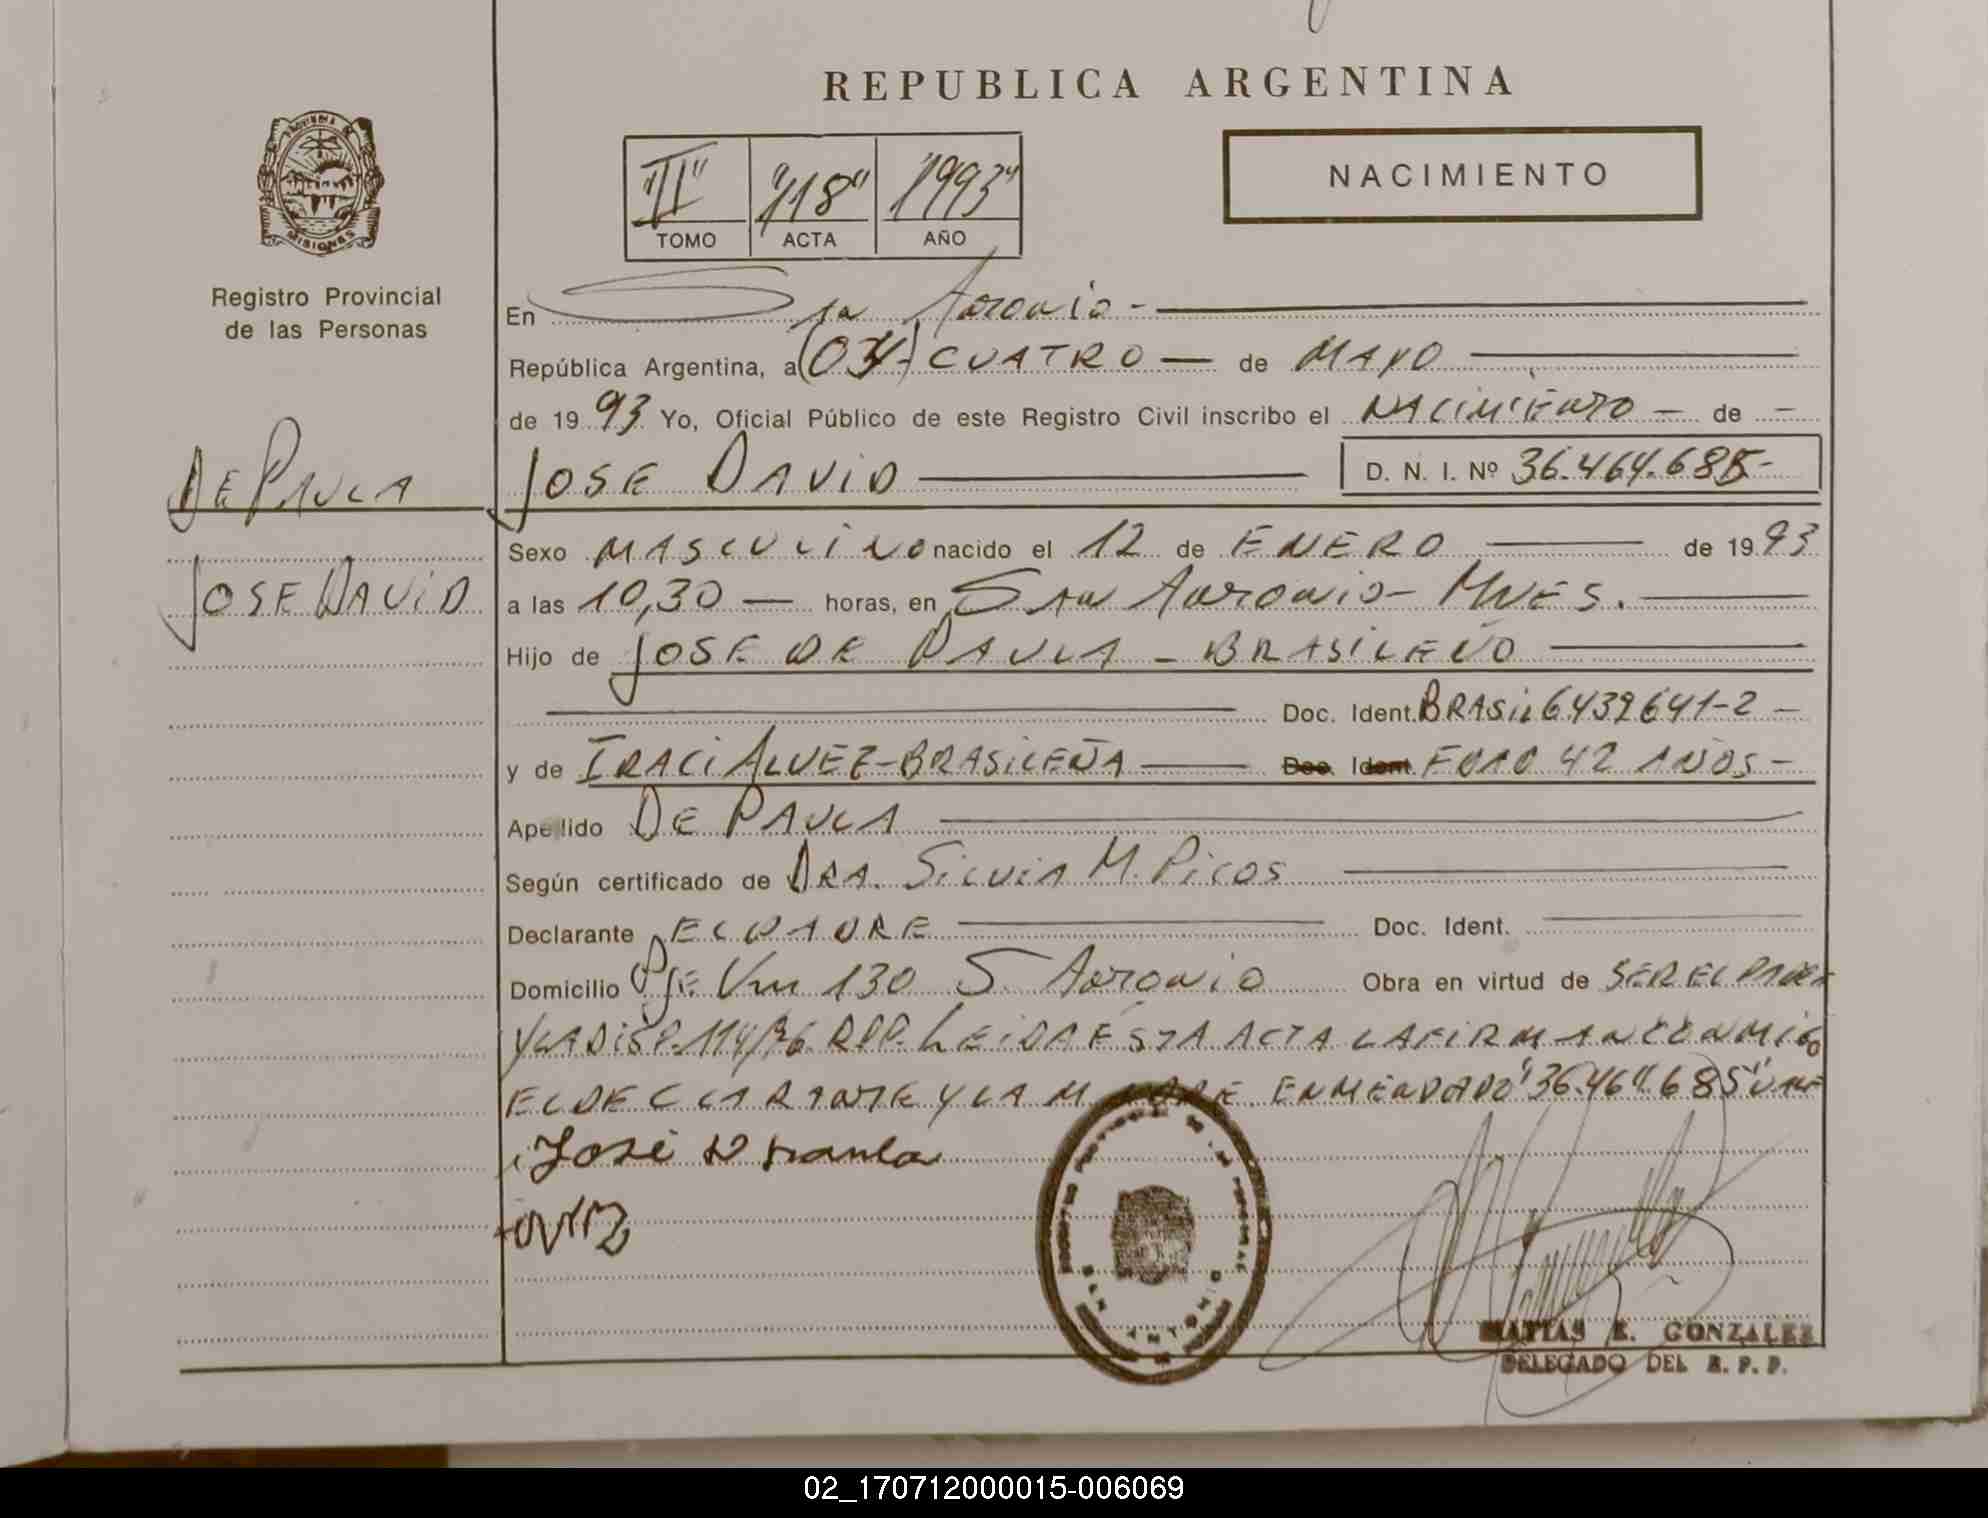 REPUBLICA ARGENTINA
"II" "118" "1993"
TOMO ACTA AÑO
NACIMIENTO
PROVINCIA DE
MISIONES
Registro Provincial
de las Personas
DE PAULA
JOSE DAVID
En San Antonio -
República Argentina, a (04) CUATRO — de MAYO
de 1993 Yo, Oficial Público de este Registro Civil inscribo el NACIMIENTO — de —
JOSE DAVID D. N. I. Nº 36.464.685-
Sexo MASCULINO nacido el 12 de ENERO de 1993
a las 10,30 — horas, en San Antonio - MNES.
Hijo de JOSE DE PAULA - BRASILEÑO
Doc. Ident. BRASIL 6439641-2 -
y de IRACI ALVEZ - BRASILEÑA Doc. Ident. EDAD 42 AÑOS -
Apellido DE PAULA
Según certificado de DRA. Silvia M. Picos
Declarante EL PADRE Doc. Ident.
Domicilio Pje Km 130 S. Antonio Obra en virtud de SER EL PADRE
Y LA DISP. 114/76 RPP. LEIDA ESTA ACTA LA FIRMAN CONMIGO
EL DECLARANTE Y LA MADRE ENMENDADO "36.464.685" VALE
José D Paula
SAN ANTONIO
MATIAS E. GONZALEZ
DELEGADO DEL R. P. P.
02_170712000015-006069